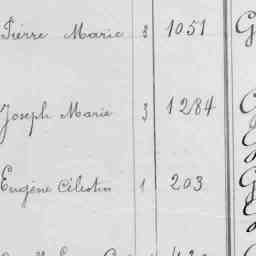 Pierre Marie 8 1051
Joseph Marie 3 1284
Eugène Célestin 1 203